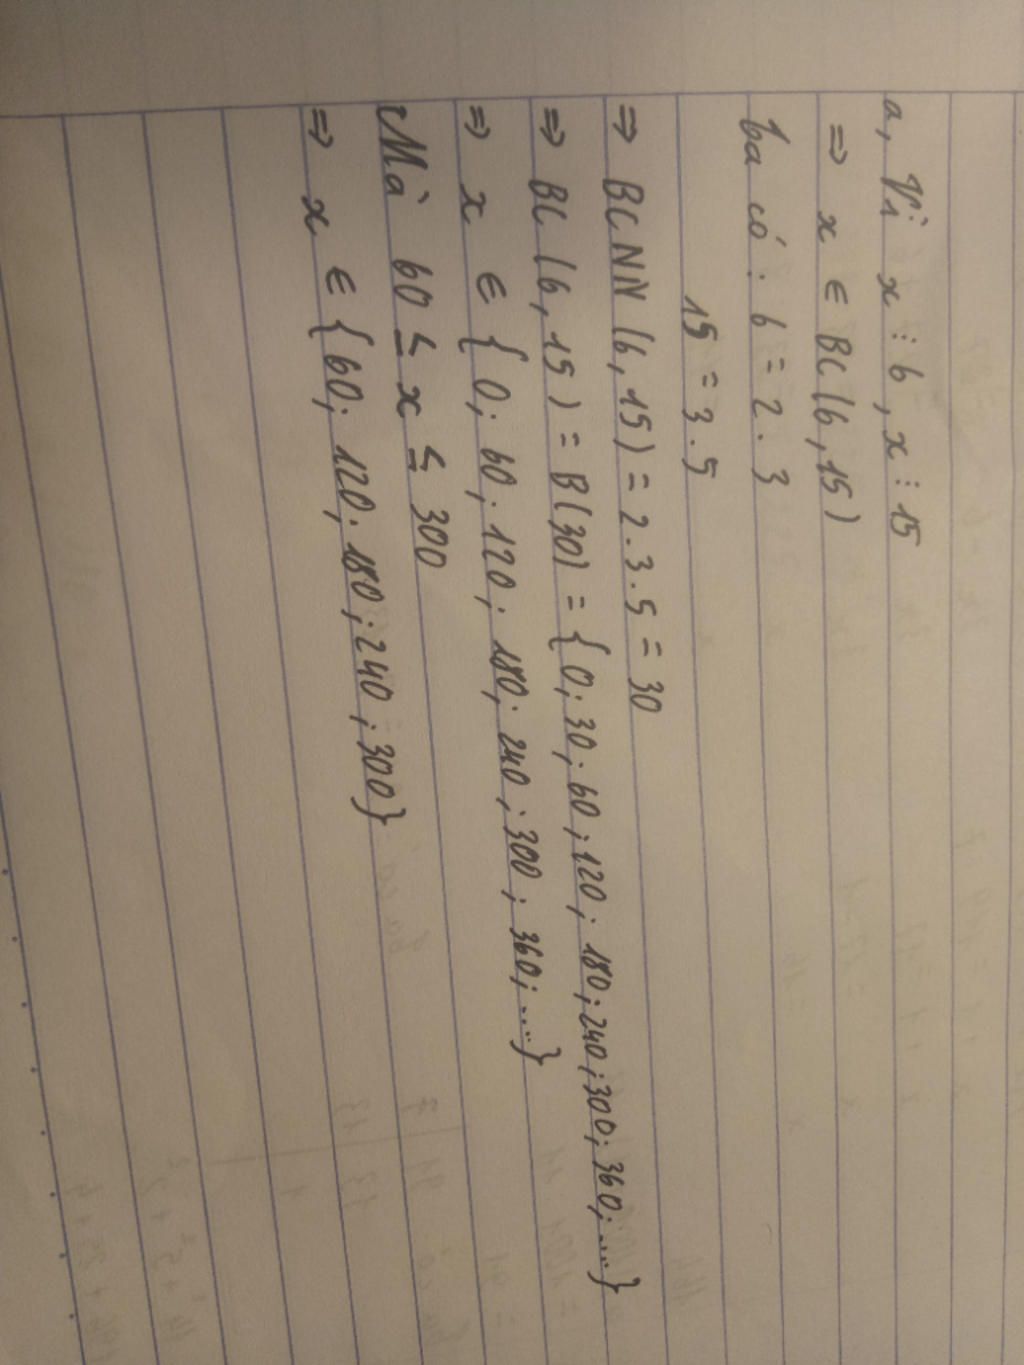 a, Vì x ⋮ 6, x ⋮ 15
⇒ x ∈ BC(6, 15)
Ta có: 6 = 2.3
15 = 3.5
⇒ BCNN(6, 15) = 2.3.5 = 30
⇒ BC(6, 15) = B(30) = {0; 30; 60; 120; 180; 240; 300; 360; ...}
⇒ x ∈ {0; 60; 120; 180; 240; 300; 360; ...}
Mà 60 ≤ x ≤ 300
⇒ x ∈ {60; 120; 180; 240; 300}